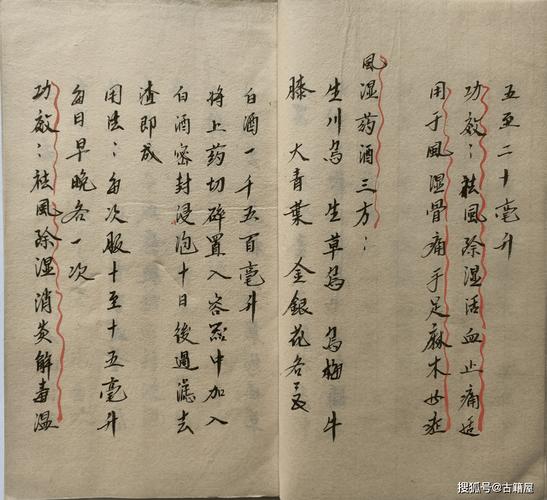 五至二十毫升
功效：祛风除湿活血止痛适
用于风湿骨痛手足麻木等症
風湿药酒三方：
生川乌 生草乌 乌梅 牛
膝 大青葉 金銀花各
白酒一千五百毫升
将上药切碎置入容器中加入
白酒密封浸泡十日後過濾去
渣即成
用法：每次服十至十五毫升
每日早晚各一次
功效：祛風除湿消炎解毒温
搜狐号@古籍屋